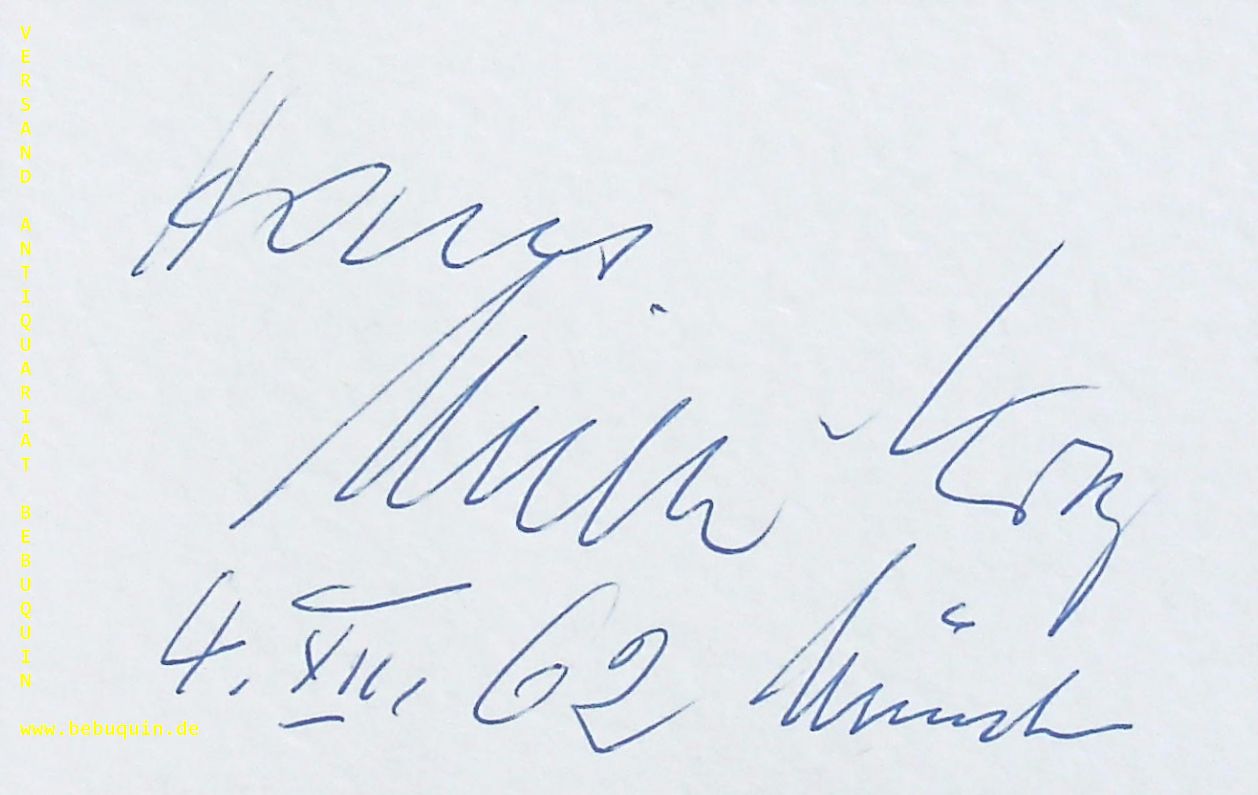 VERSAND ANTIQUARIAT BEBUQUIN
Hans
Müller-Kray
4. XII. 62 München
www.bebuquin.de